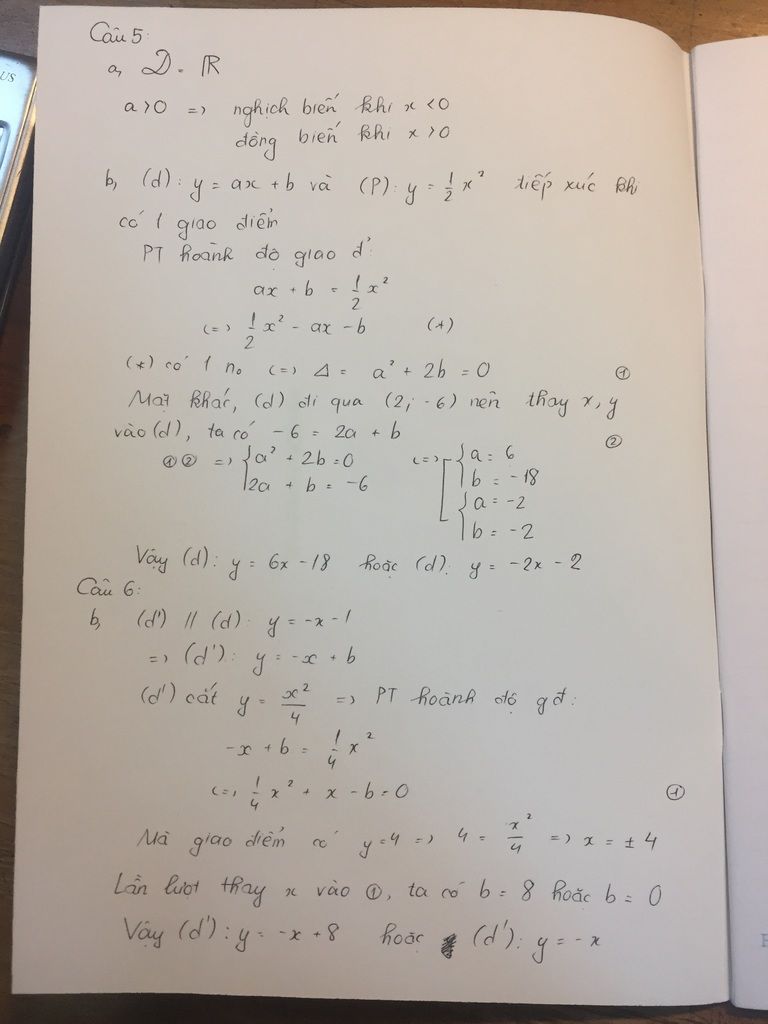 Câu 5:
a, D = ℝ
a > 0 => nghịch biến khi x < 0
đồng biến khi x > 0
b, (d): y = ax + b và (P): y = 1/2 x² tiếp xúc khi
có 1 giao điểm
PT hoành độ giao đ':
ax + b = 1/2 x²
<=> 1/2 x² - ax - b (*)
(*) có 1 n₀ <=> Δ = a² + 2b = 0 ①
Mặt khác, (d) đi qua (2; -6) nên thay x, y
vào (d), ta có -6 = 2a + b ②
①② => { a² + 2b = 0 <=> [ { a = 6
2a + b = -6 b = -18
{ a = -2
b = -2
Vậy (d): y = 6x - 18 hoặc (d): y = -2x - 2
Câu 6:
b, (d') // (d): y = -x - 1
=> (d'): y = -x + b
(d') cắt y = x²/4 => PT hoành độ gđ:
-x + b = 1/4 x²
<=> 1/4 x² + x - b = 0 ①
Mà giao điểm có y = 4 => 4 = x²/4 => x = ± 4
Lần lượt thay x vào ①, ta có b = 8 hoặc b = 0
Vậy (d'): y = -x + 8 hoặc (d'): y = -x
US